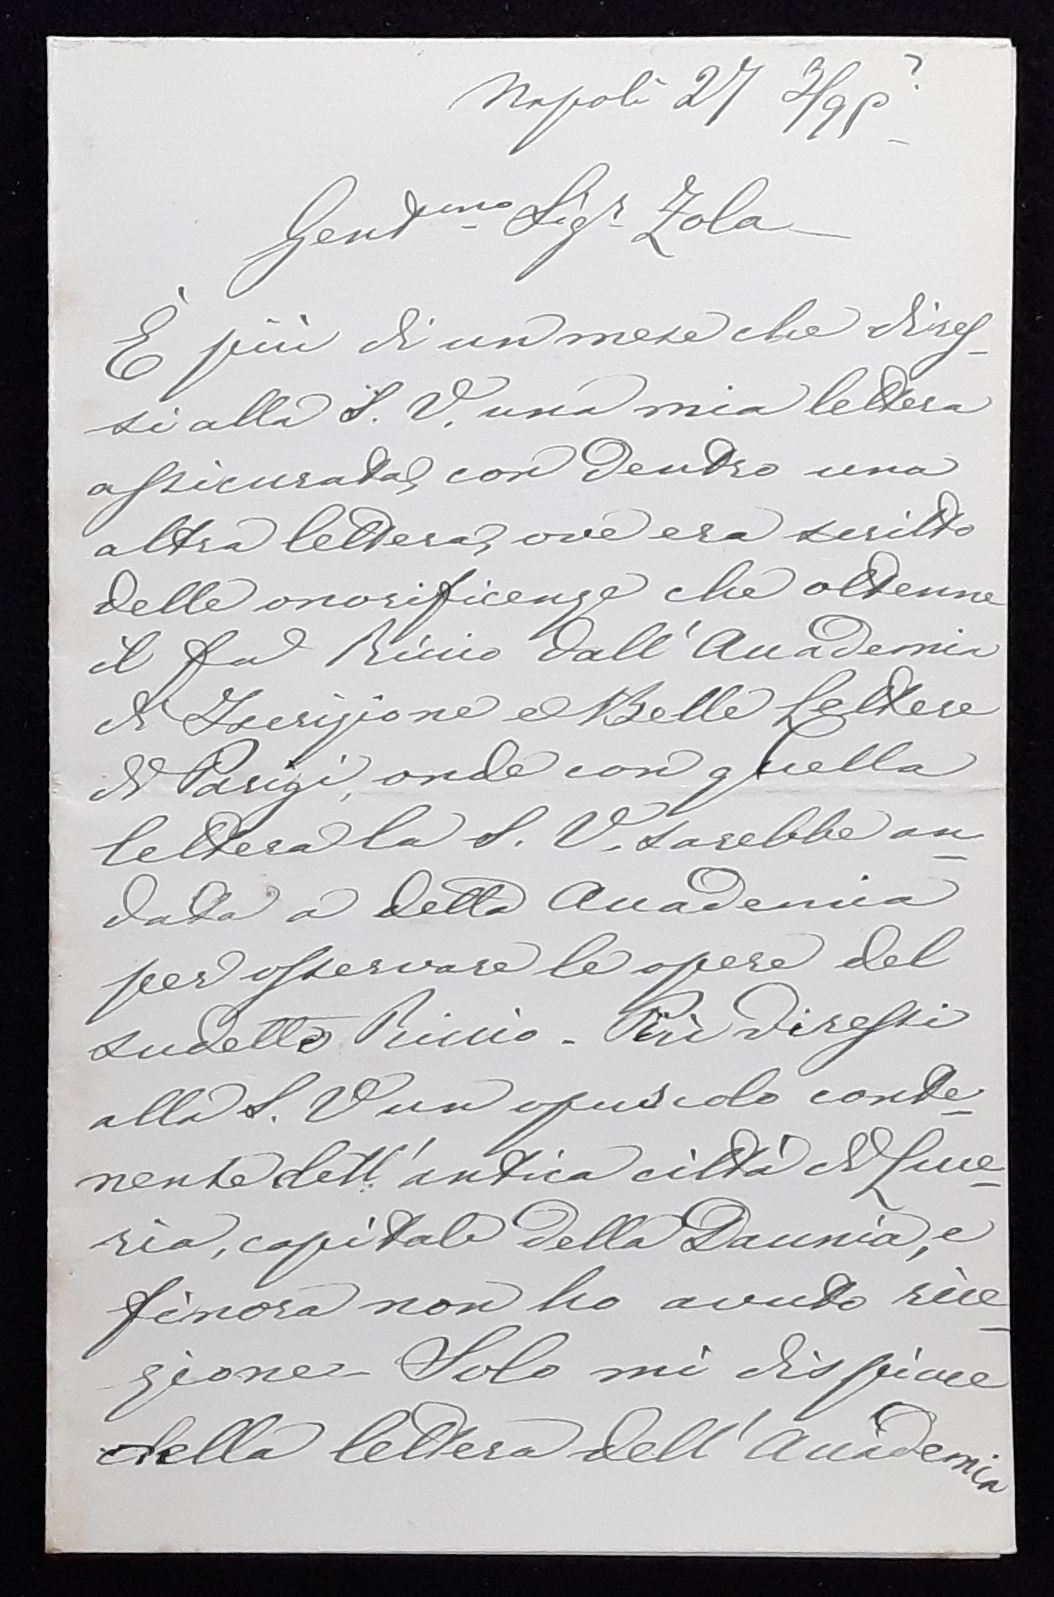 Napoli 27 3/95
Gent.imo Sigr Zola
È più di un mese che dires-
si alla S. V. una mia lettera
assicurata, con dentro una
altra lettera, ove era scritto
delle onorificenze che ottenne
il fu Riccio dall' Accademia
di Iscrizione e Belle Lettere
di Parigi, onde con quella
lettera la S. V. sarebbe an-
data a detta Accademia
per osservare le opere del
sudetto Riccio - Più diressi
alla S. V un opuscolo conte-
nente dell' antica città di Luce-
ria, capitale della Daunia, e
finora non ho avuto rice-
zione - Solo mi dispiace
della lettera dell' Accademia